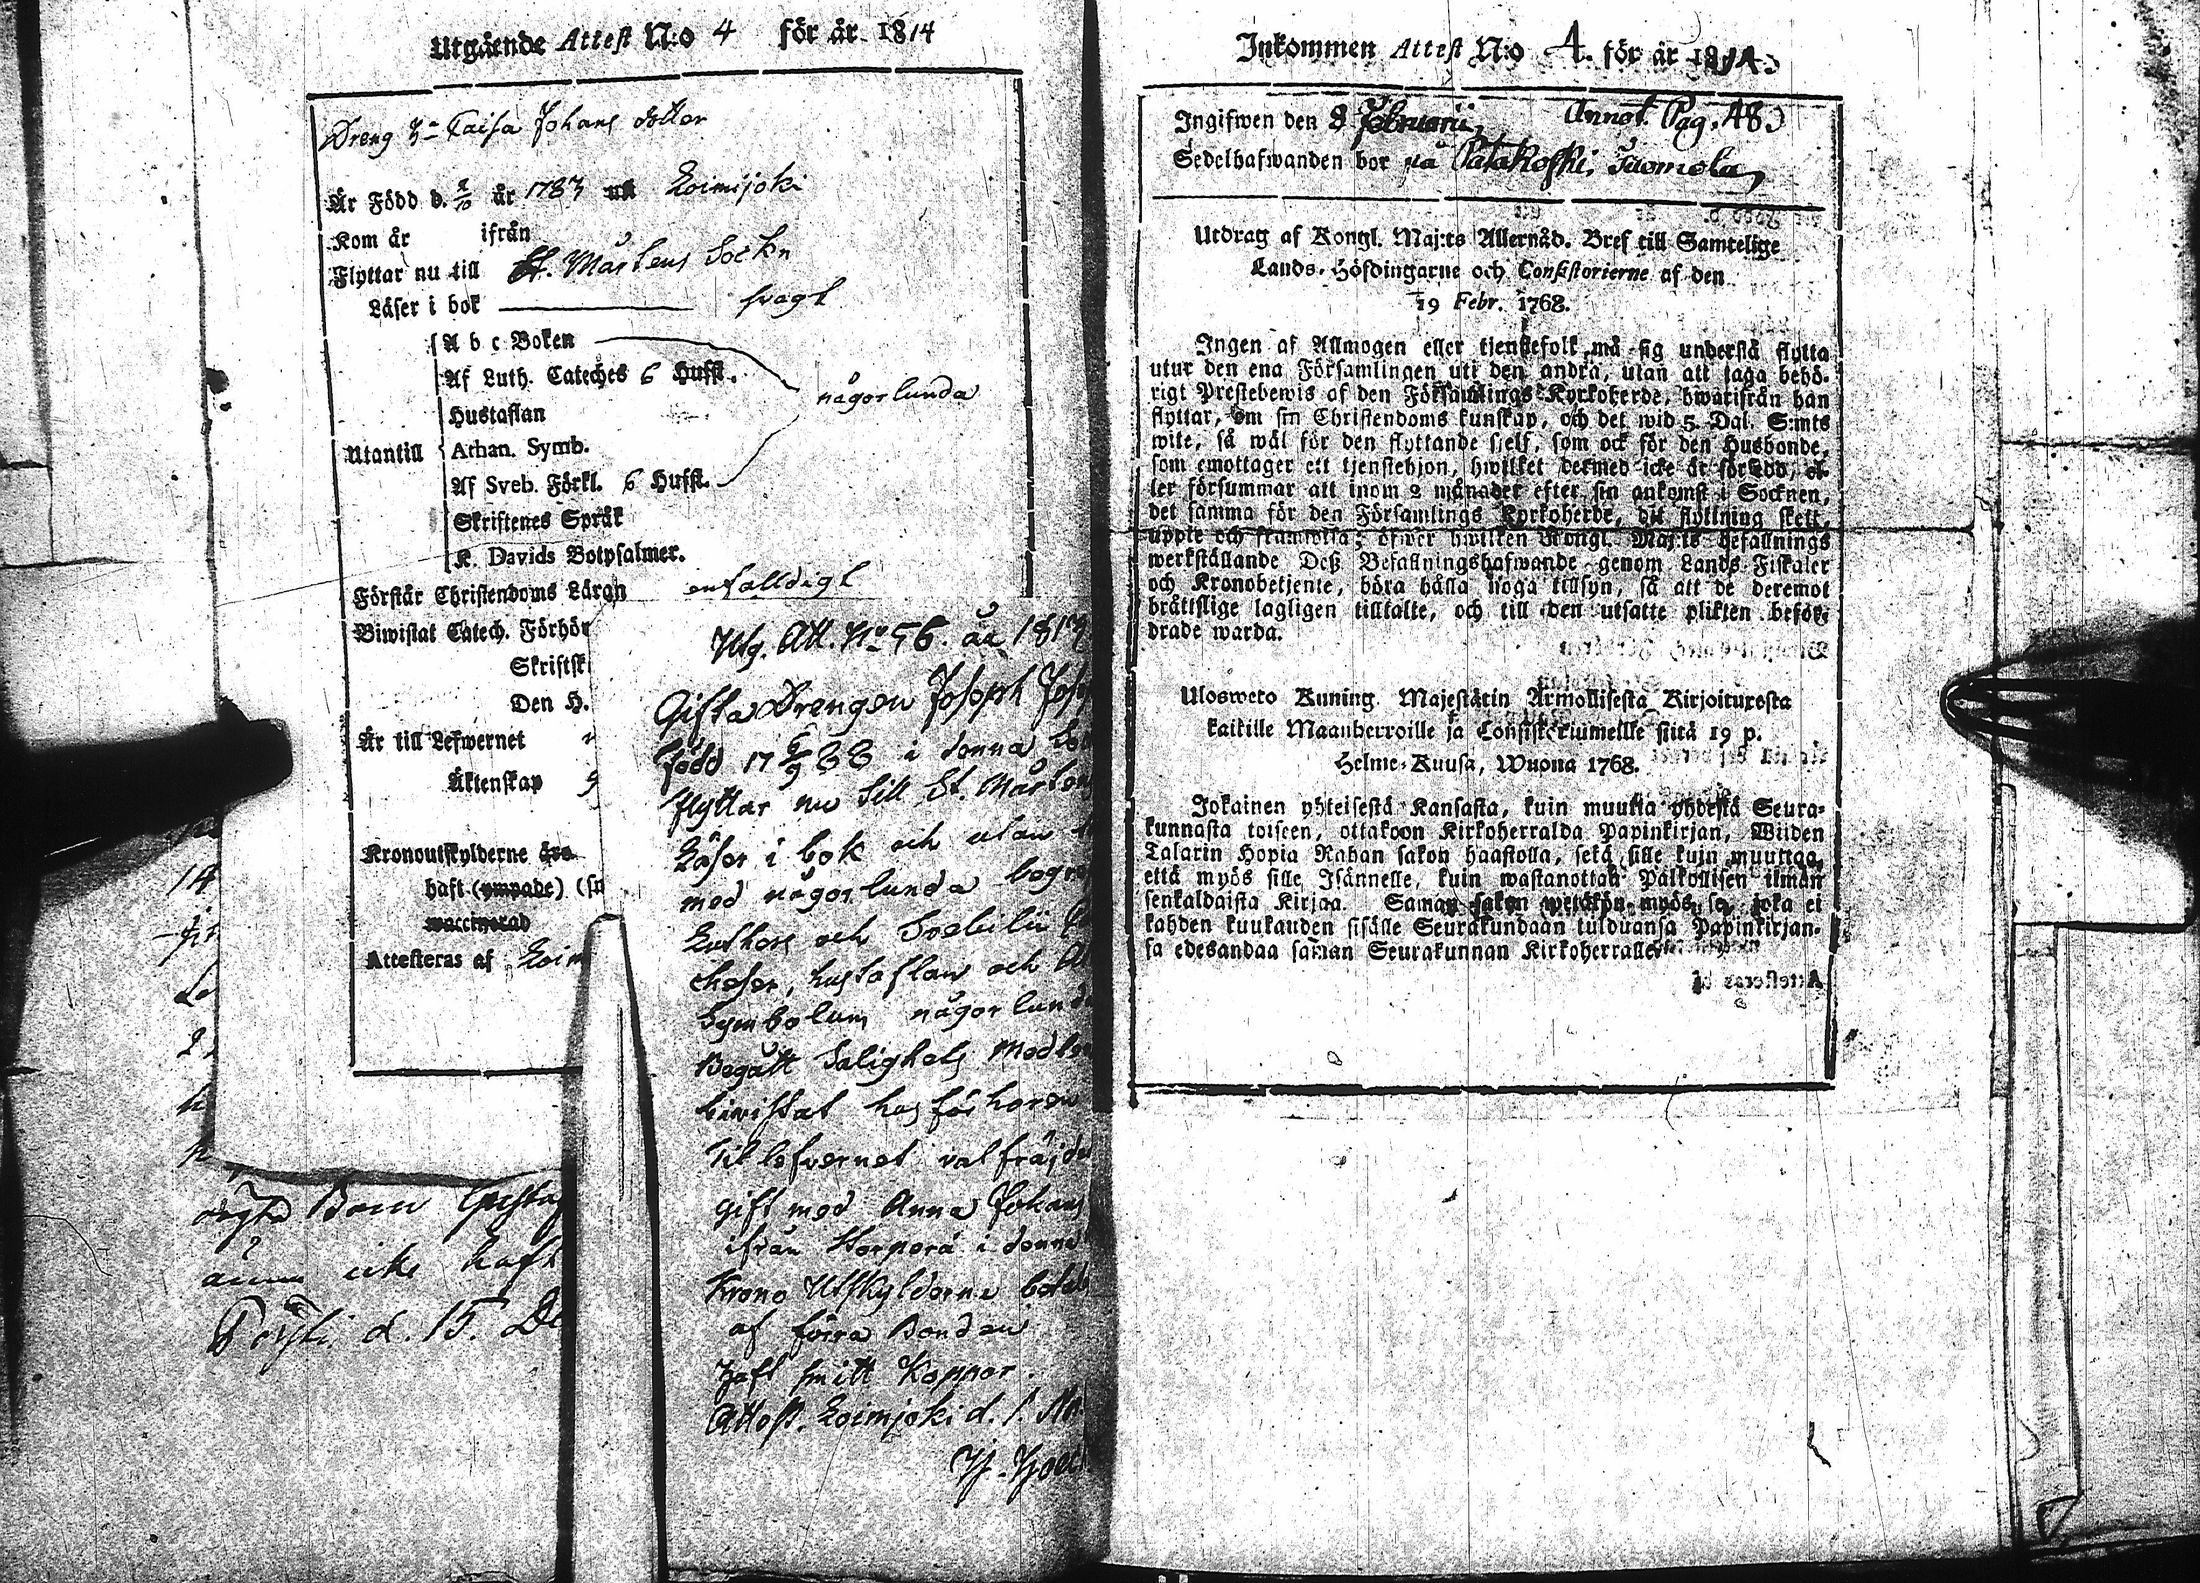 Utgående Attest N:o 4 för år 1814
Dreng h:u Caisa Johans dotter
Är Född d. 2/10 år 1783 uti Loimijoki
Kom år ifrån
Flyttar nu till St. Mårtens Sockn
Läser i bok svagt
A b c Boken
Af Luth. Cateches 6 Hufst.
Hustaflan
någorlunda
Utantill
Athan. Symb.
Af Sveb. Förkl. 6 Hufst.
Skriftenes Språk
K. Davids Botpsalmer.
Förstår Christendoms Läran enfalldigt
Biwistat Catech. Förhör
Skriftsk
Den H.
Är till Lefwernet
Äktenskap
Kronoutskylderne äro
haft (ympade) (sm
waccinerad
Attesteras af Loim
ånnu icke haft
d. 15. De
Utg. Att. No 56. år 1813
Gifta Drengen Joseph Jos
född 17 5/9 88 i denna
flyttar nu till St. Mårtens
Läser i bok och utan
med någorlunda begre
Luthers och Svebilii
cheser, hustaflan och A
Symbolum någorlunda
Begått Salighets Medle
biwistat husförhören
Til lefvernet valfräjda
gift med Anna Johans
ifrån Korperå i denna
Krono Utskylderna betal
af förra Bonden
Haft smitt Koppor.
Attest. Loimjoki d. 1.
Inkommen Attest N:o 4. för år 1814
Ingifwen den 8 Februarii, Annot. Pag. 483
Sedelhafwanden bor på Patakoski, Tuomola
Utdrag af Kongl. Maj:ts Allernåd. Bref till Samtelige
Lands-Höfdingarne och Consistorierne af den
19 Febr. 1768.
Ingen af Allmogen eller tjenstefolk må sig understå flytta
utur den ena Församlingen uti den andra, utan att taga behö-
rigt Prestebewis af den Församlings Kyrkoherde, hwarifrån han
flyttar, om sin Christendoms kunskap, och det wid 5. Dal. S:mts
wite, så wäl för den flyttande sjelf, som ock för den Husbonde,
som emottager ett tjenstehjon, hwilket dermed icke är försedd, el-
ler försummar att inom 2 månader efter sin ankomst i Socknen,
det samma för den Församlings Kyrkoherde, dit flyttning skett,
uppte och framwisa; öfwer hwilken Kongl. Maj:ts befallnings
werkställande Deß Befallningshafwande genom Lands-Fiskaler
och Kronobetjente, böra hålla noga tillsyn, så att de deremot
bråttslige lagligen tilltalte, och till den utsatte plikten beför-
drade warda.
Ulosweto Kuning. Majestätin Armollisesta Kirjoituxesta
kaikille Maanherroille ja Consistoriumeille siitä 19 p.
Helme-Kuusa, Wuona 1768.
Jokainen yhteisestä Kansasta, kuin muutta yhdestä Seura-
kunnasta toiseen, ottakoon Kirkoherralda Papinkirjan, Wiiden
Talarin Hopia Rahan sakon haastolla, sekä sille kuin muuttaa,
että myös sille Isännelle, kuin wastanottaa Palkollisen ilman
senkaldaista Kirjaa. Saman sakon wetäkön myös se, joka ei
kahden kuukauden sisälle Seurakundaan tulduansa Papinkirjan-
sa edesandaa saman Seurakunnan Kirkoherralle.